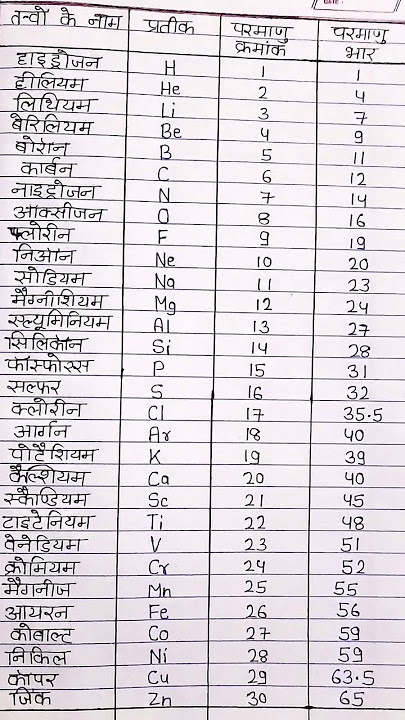 DATE :
तत्वों के नाम प्रतीक परमाणु क्रमांक परमाणु भार
हाइड्रोजन H 1 1
हीलियम He 2 4
लिथियम Li 3 7
बेरिलियम Be 4 9
बोरॉन B 5 11
कार्बन C 6 12
नाइट्रोजन N 7 14
ऑक्सीजन O 8 16
फ्लोरीन F 9 19
निऑन Ne 10 20
सोडियम Na 11 23
मैग्नीशियम Mg 12 24
एल्यूमिनियम Al 13 27
सिलिकॉन Si 14 28
फॉस्फोरस P 15 31
सल्फर S 16 32
क्लोरीन Cl 17 35.5
आर्गन Ar 18 40
पोटैशियम K 19 39
कैल्शियम Ca 20 40
स्कैण्डियम Sc 21 45
टाइटेनियम Ti 22 48
वेनेडियम V 23 51
क्रोमियम Cr 24 52
मैगनीज Mn 25 55
आयरन Fe 26 56
कोबाल्ट Co 27 59
निकिल Ni 28 59
कॉपर Cu 29 63.5
जिंक Zn 30 65